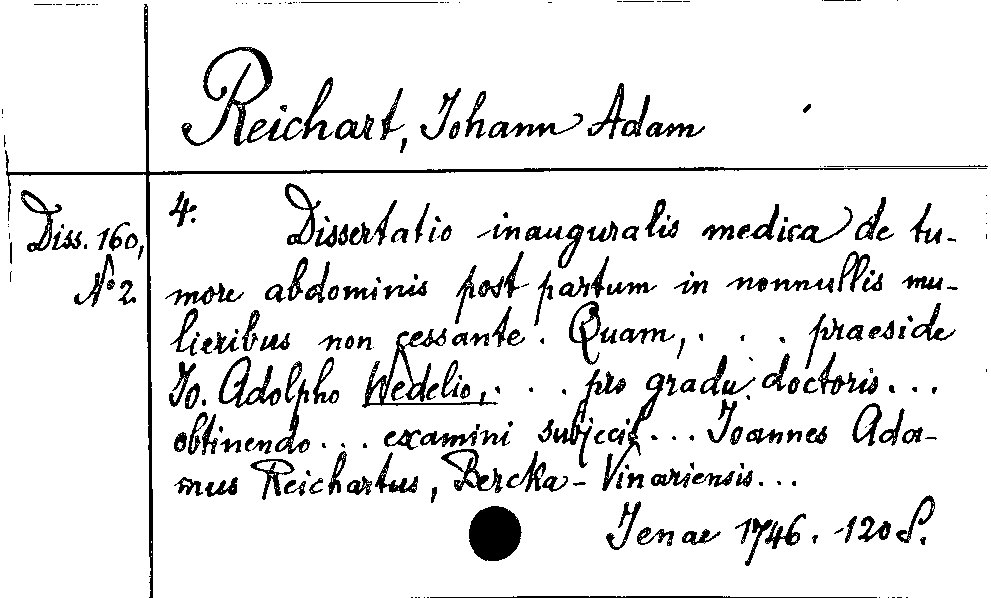 Reichart, Johann Adam
Diss. 160,
No 2.
4: Dissertatio inauguralis medica de tu-
more abdominis post partum in nonnullis mu-
lieribus non cessante. Quam, . . . praeside
Io. Adolpho Wedelio, . . . pro gradu doctoris...
obtinendo... examini subjecit... Ioannes Ada-
mus Reichartus, Bercka-Vinariensis...
Jenae 1746. 120 S.